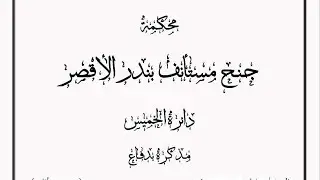 محكمة
جنح مستأنف بندر الأقصر
دائرة الخميس
مذكرة بدفاع